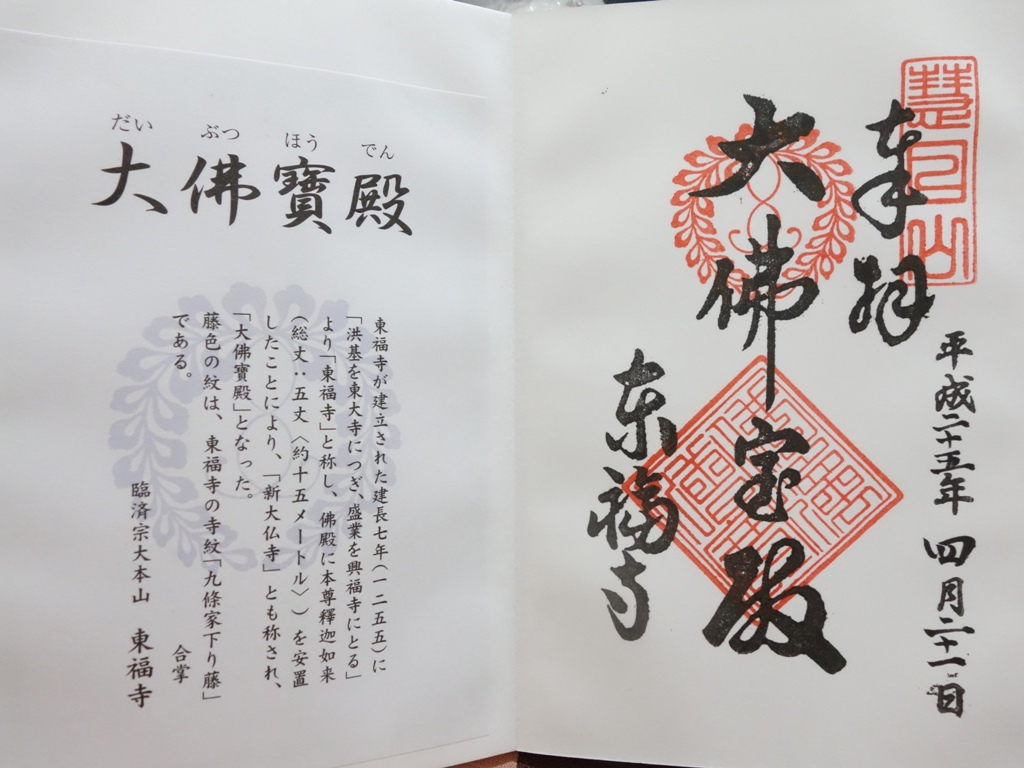 だい ぶつ ほう でん
大佛寶殿
東福寺が建立された建長七年（一二五五）に
「洪基を東大寺につぎ、盛業を興福寺にとる」
より「東福寺」と称し、佛殿に本尊釋迦如来
（総丈：五丈〈約十五メートル〉）を安置
したことにより、「新大仏寺」とも称され、
「大佛寶殿」となった。
藤色の紋は、東福寺の寺紋「九條家下り藤」
である。
合掌
臨済宗大本山 東福寺
慧日山
奉拝
平成二十五年 四月二十一日
大佛宝殿
東福寺